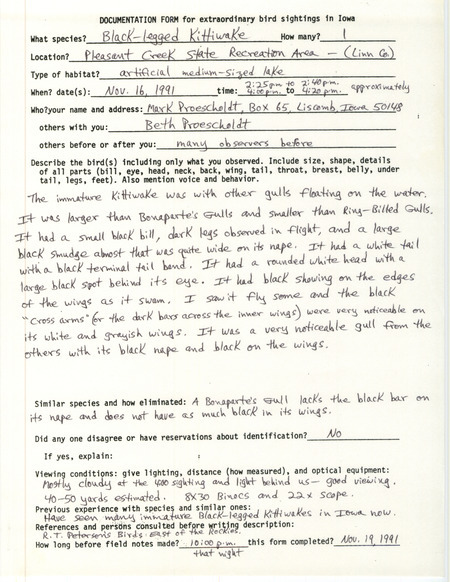 DOCUMENTATION FORM for extraordinary bird sightings in Iowa
What species? Black-legged Kittiwake How many? 1
Location? Pleasant Creek State Recreation Area - (Linn Co.)
Type of habitat? artificial medium-sized lake
2:25pm to 2:40pm.
When? date(s): Nov. 16, 1991 time: 4:00pm. to 4:20pm. approximately
Who?your name and address: Mark Proescholdt, Box 65, Liscomb, Iowa 50148
others with you: Beth Proescholdt
others before or after you: many observers before
Describe the bird(s) including only what you observed. Include size, shape, details
of all parts (bill, eye, head, neck, back, wing, tail, throat, breast, belly, under
tail, legs, feet). Also mention voice and behavior.
The immature Kittiwake was with other gulls floating on the water.
It was larger than Bonaparte's Gulls and smaller than Ring-Billed Gulls.
It had a small black bill, dark legs observed in flight, and a large
black smudge almost that was quite wide on its nape. It had a white tail
with a black terminal tail band. It had a rounded white head with a
large black spot behind its eye. It had black showing on the edges
of the wings as it swam. I saw it fly some and the black
"cross arms" (or the dark bars across the inner wings) were very noticeable on
its white and grayish wings. It was a very noticeable gull from the
others with its black nape and black on the wings.
Similar species and how eliminated: A Bonaparte's Gull lacks the black bar on
its nape and does not have as much black in its wings.
Did any one disagree or have reservations about identification? No
If yes, explain:
Viewing conditions: give lighting, distance (how measured), and optical equipment:
Mostly cloudy at the 4:00 sighting and light behind us - good viewing.
40-50 yards estimated. 8X30 Binocs and 22x scope.
Previous experience with species and similar ones:
Have seen many immature Black-legged Kittiwakes in Iowa now.
References and persons consulted before writing description:
R.T. Peterson's Birds East of the Rockies.
How long before field notes made? 10:00 p.m. this form completed? Nov. 19, 1991
that night